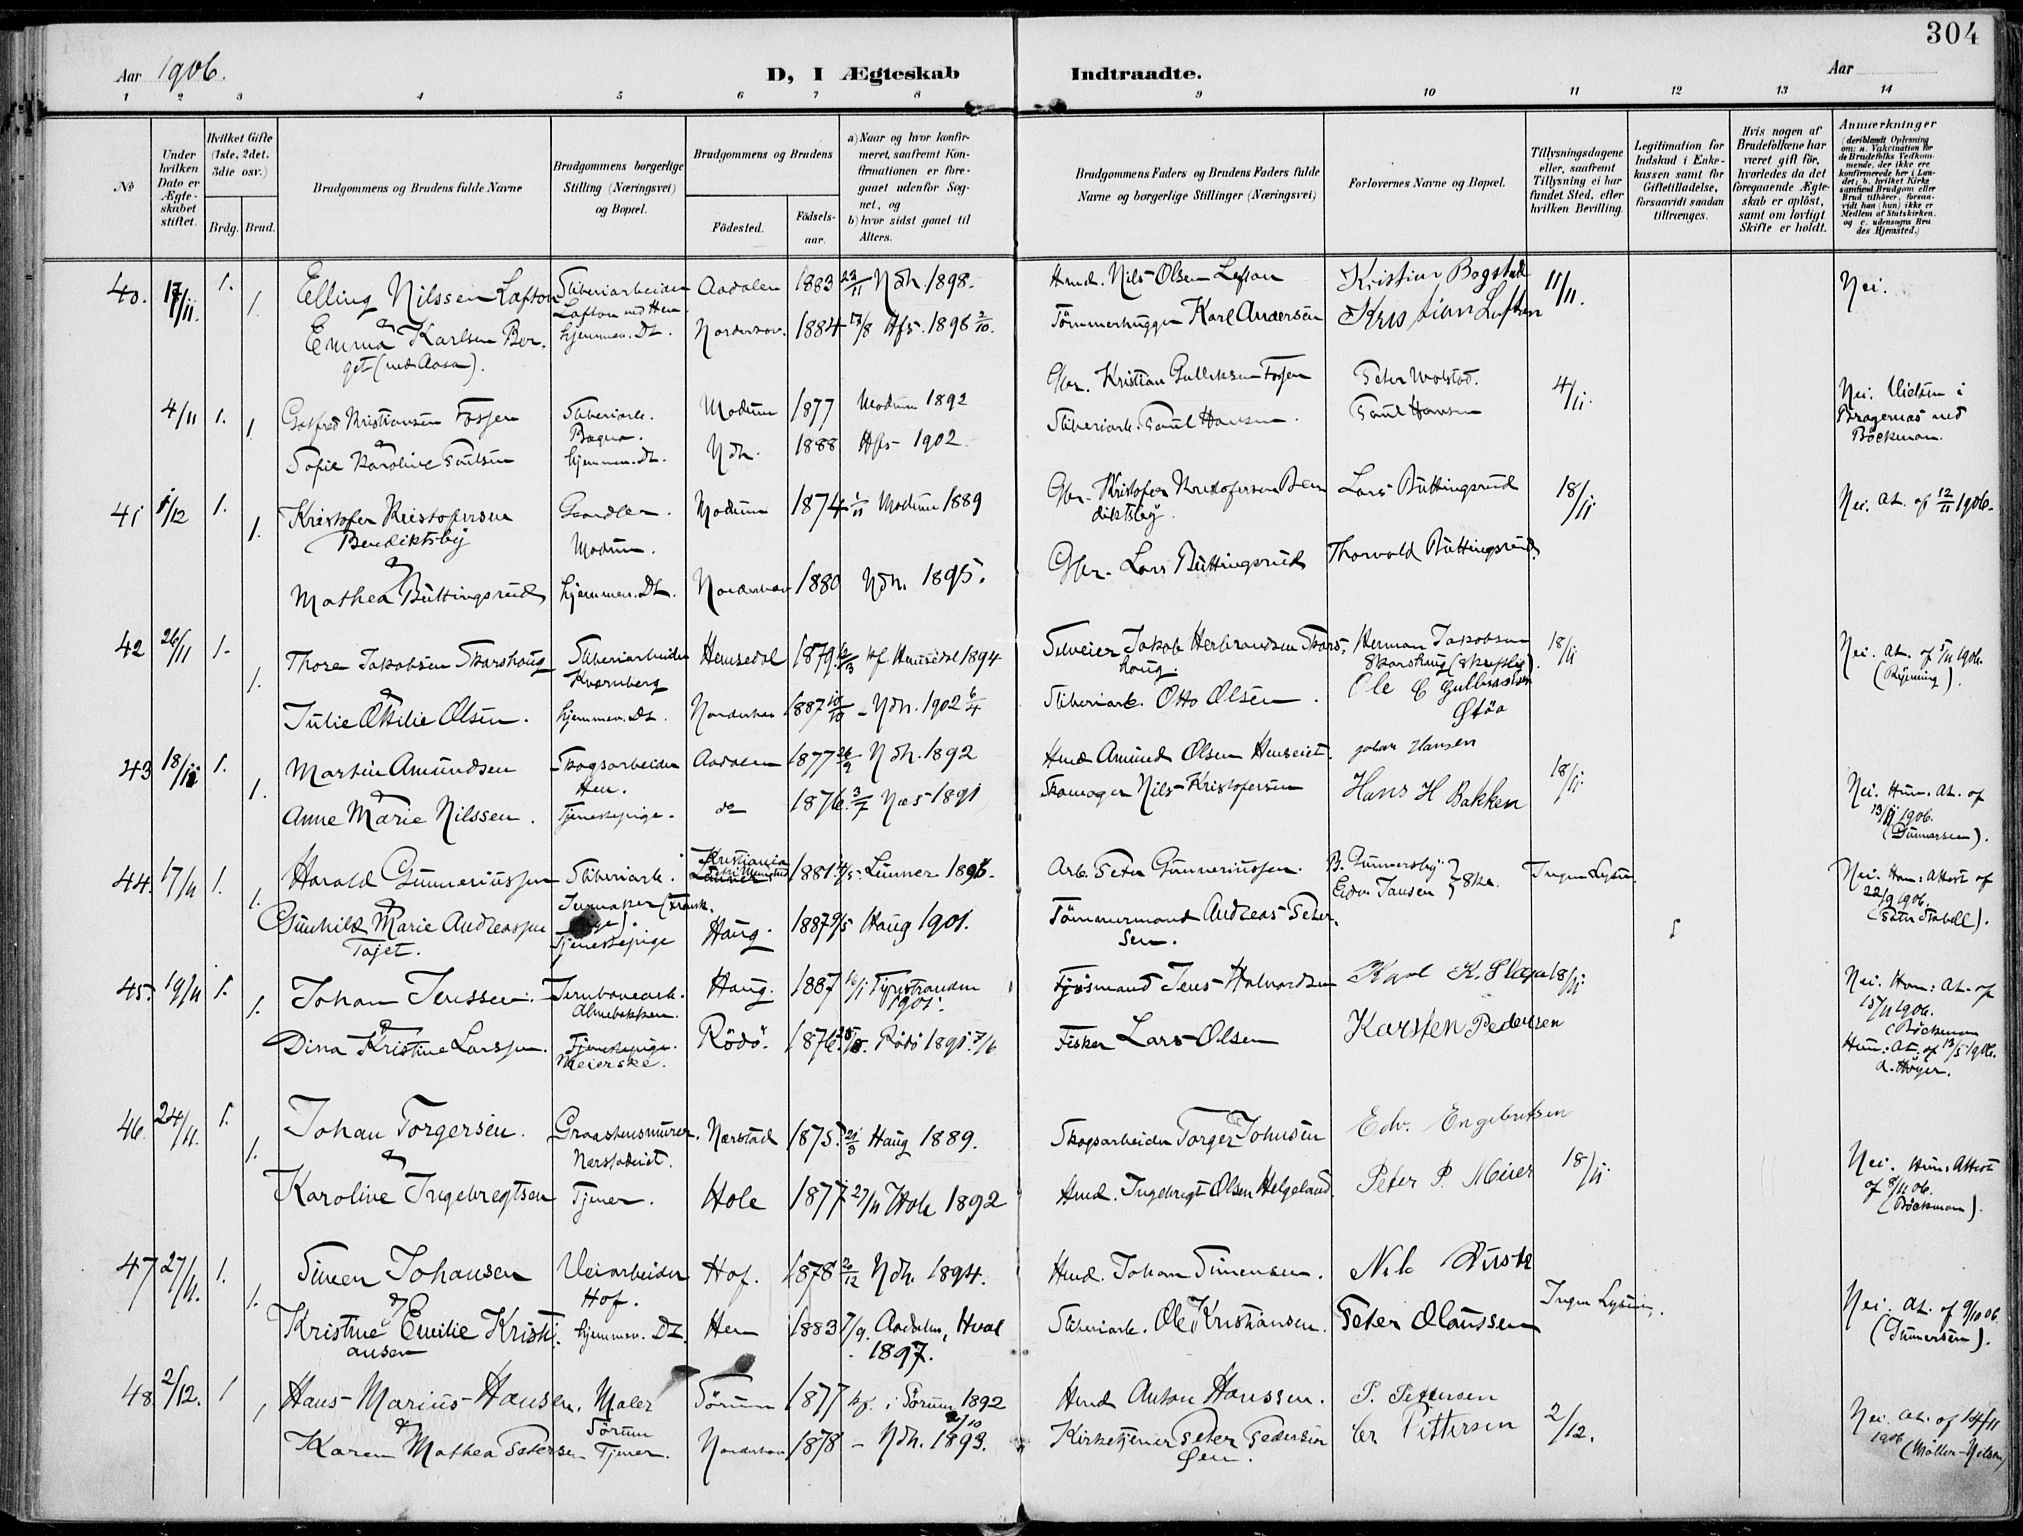 304
Aar 1906.
D, I Ægteskab Indtraadte.
Aar
1 2 3 4 5 6 7 8 9 10 11 12 13 14
No
Under hvilken Dato er Ægteskabet stiftet.
Hvilket Gifte (1ste, 2det, 3die osv.)
Brdg. Brud.
Brudgommens og Brudens fulde Navne
Brudgommens borgerlige Stilling (Næringsvei) og Bopæl.
Brudgommens og Brudens
Födested. Födselsaar.
a) Naar og hvor konfirmeret, saafremt Konfirmationen er foregaaet udenfor Sognet, og
b) hvor sidst gaaet til Alters.
Brudgommens Faders og Brudens Faders fulde Navne og borgerlige Stillinger (Næringsvei)
Forlovernes Navne og Bopæl.
Tillysningsdagene eller, saafremt Tillysning ei har fundet Sted, efter hvilken Bevilling.
Legitimation for Indskud i Enkekassen samt for Giftetilladelse, forsaavidt saadan tiltrænges.
Hvis nogen af Brudefolkene har været gift för, hvorledes da det foregaaende Ægteskab er oplöst, samt om lovligt Skifte er holdt.
Anmærkninger
(deriblandt Oplysning om: a. Vakcination for de Brudefolks Vedkommende, der ikke ere konfirmerede her i Landet; b. hvilket Kirkesamfund Brudgom eller Brud tilhörer, forsaavidt han (hun) ikke er Medlem af Statskirken, og c. udensogns Brudes Hjemsted.)
40. 17/11. 1. Elling Nilssen Lafton Sliberiarbeider Aadalen 1883 23/11 Ndh. 1898. Hmd. Nils Olsen Lafton Kristian Bogstad 11/11. Nei.
Lafton ved Hen
1. Emma Karlsen Berget (ved Aasa). hjemmev. Dt. Norderhov. 1884 17/8 Hfs. 1896 2/10. Tömmerhugger Karl Andersen Kristian Lafton
4/11 1. Gotfred Kristiansen Fossen Sliberiarb. Modum 1877 Modum 1892 Gbr. Kristian Gulliksen Fossen Peter Wolstad. 4/11. Nei. Vielsen i
Bragernæs ved
Böckman.
1. Sofie Karoline Paulsen hjemmev. Dt. Ndh. 1888 Hfs 1902. Sliberiarb. Paul Hansen. Paul Hansen
41 1/12 1. Kristofer Kristofersen Gaardbr. Modum 1874 1/11 Modum 1889 Gbr. Kristofer Kristofersen Benediktsby. Lars Büttingsrud 18/11 Nei. At. af 12/11 1906.
Benediktsby Modum.
1. Mathea Büttingsrud hjemmev. Dt. Norderhov 1880 Ndh. 1895. Gbr. Lars Büttingsrud Thorvald Büttingsrud.
42 26/11 1. Thore Jakobsen Skarshaug Sliberiarbeider Hemsedal 1879 kf. Hemsedal 1894 Selveier Jakob Herbrandsen Skarshaug. Herman Jakobsen 18/11 Nei. At. af 5/11 1906.
Kværnberg
1. Julie Otilie Olsen. hjemmev. Dt. Norderhov 1887 10/10 Ndh. 1902 6/4 Sliberiarb. Otto Olsen. Ole G Gulbrandsen
Støa
43 18/11 1. Martin Amundsen Skogsarbeider Aadalen 1877 26/9 Ndh. 1892 Hmd. Amund Olsen Henseiet. Johan Hansen 18/11.
Hen.
1. Anne Marie Nilssen. Tjenestepige. do 1876. 3/7 Næs 1891 Skomager Nils Kristofersen Hans H Bakken
Nei. Hun: At. af
13/11 1906.
(Gunnersen).
44. 17/11 1. Harald Gunneriussen Sliberiarb. Kristiania 1881 Lunner 1896. Arb. Peter Gunneriussen. B. Gunnersby Edv. Jansen Ske. Ingen Lysn. Nei. Hun: Attest af
22/9 1906.
(Peter Stabell).
Jevnaker
1. Gunhild Marie Andreassen Tajet. Tjenestepige Haug. 1887 9/5 Haug 1901. Tömmermand Andreas Petersen.
45. 19/11 1. Johan Jenssen. Jernbanearb. Haug. 1887 Tyristranden 1901. Fjösmand Jens Halvordsen Karl K. 18/11 Nei. Hun: At. af
15/11 1906.
(Böckman
Hun: At. af 13/5 1906.
A. Höyer.
Almebakken.
1. Dina Kristine Larssen. Tjenestepige. Meierske. Rödö. 1876. Rödö 1891. 7/6 Fisker Lars Olsen Karsten Pedersen
46. 24/11. 1. Johan Torgersen. Graastensmurer. Nærstad 1875. 21/3 Haug 1889. Skogsarbeider Torger Johnsen Edv. Engebretsen
Nærstadeiet.
1. Karoline Ingebregtsen Tjener. Hole 1877 27/11 Hole 1892 Hmd. Ingebregt Olsen Helgeland. Peter P. Meier 18/11 Nei. Hun: Attest
af 8/11 06.
(Böckman).
47 27/11. 1. Simen Johansen Veiarbeider Hof. 1878 2/12 Ndh. 1894. Hmd. Johan Simensen.
Hof.
1. Kristine Emilie Kristiansen hjemmev. Dt. Hen 1883 7/9. Aadalen, Hval 1897. Sliberiarb. Ole Kristiansen. Peter Olaussen Ingen Lysning. Nei. At. af 9/10 06.
(Gunnersen).
48. 2/12. 1 Hans Marius Hansen. Maler Sörum 1877 kf. i Sörum 1892 Hmd Anton Hanssen. P. Pettersen
Sörum
1 Karen Mathea Petersen Tjener. Norderhov 1878 Ndh. 1893. Kirketjener Peter Pedersen Öen. Chr Pettersen 2/12. Nei. At. af 14/11
1906 (Møller-Nilsen)